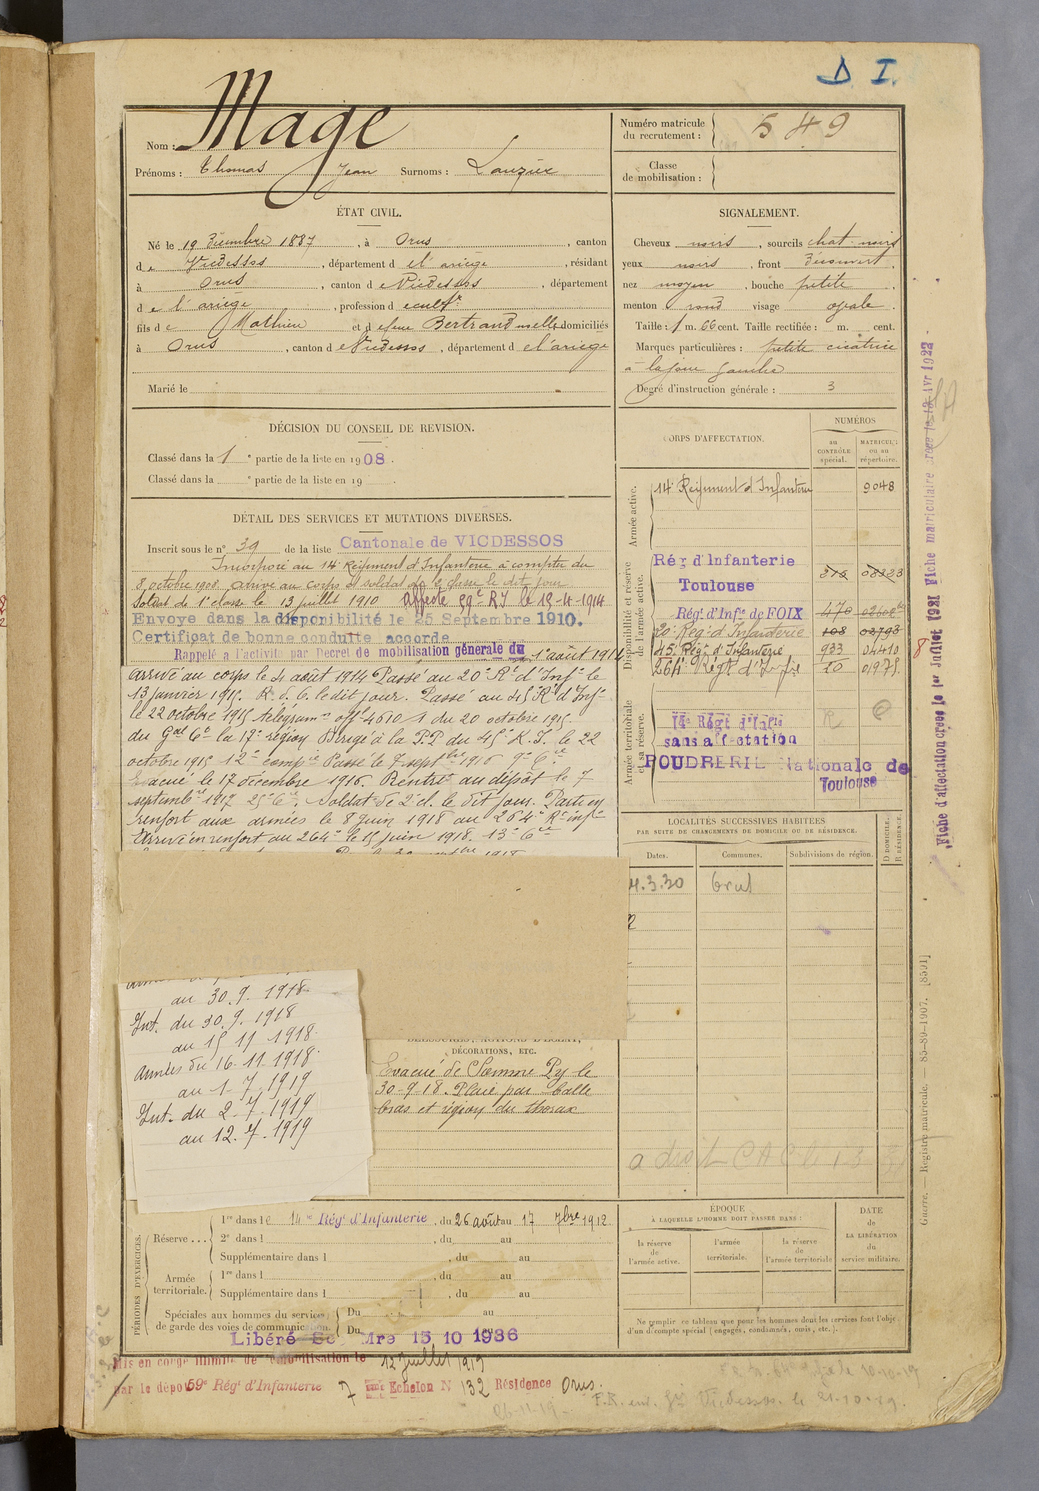 D I.
Nom : Mage
Prénoms : Thomas Jean Surnoms : Lauzié
Numéro matricule du recrutement : 549
Classe de mobilisation :
ÉTAT CIVIL.
Né le 19 Décembre 1887, à Orus, canton
de Vicdessos, département de l'ariège, résidant
à Orus, canton de Vicdessos, département
de l'ariège, profession de cultr
fils de Mathieu et de feue Bertrand domiciliés
à Orus, canton de Vicdessos, département de l'ariège
Marié le
SIGNALEMENT.
Cheveux noirs, sourcils chat. noirs
yeux noirs, front découvert,
nez moyen, bouche petite,
menton rond visage ovale.
Taille : 1 m. 66 cent. Taille rectifiée : m. cent.
Marques particulières : petite cicatrice
à la joue gauche
Degré d'instruction générale : 3
DÉCISION DU CONSEIL DE REVISION.
Classé dans la 1e partie de la liste en 1908.
Classé dans la e partie de la liste en 19 .
DÉTAIL DES SERVICES ET MUTATIONS DIVERSES.
Inscrit sous le n° 39 de la liste Cantonale de VICDESSOS
Incorporé au 14e Régiment d'Infanterie à compter du
8 octobre 1908. Arrivé au corps et soldat de 2e classe le dit jour
Soldat de 1e classe le 13 juillet 1910 affecté 59e RI le 18-4-1914
Envoyé dans la disponibilité le 25 Septembre 1910.
Certificat de bonne conduite accordé
Rappelé à l'activité par Décret de mobilisation générale du 1er août 1914
arrivé au corps le 4 août 1914 Passé au 20e Rt d'Infie le
13 janvier 1915. Rt d. C. le dit jour. Passé au 45e Rt d'Infie
le 22 octobre 1915 télégramme offel 4610 1 du 20 octobre 1915.
du Gal Ct la 17e région Dirigé à la P.P du 45e R.I. le 22
octobre 1915 12e compie Passé le 7 septbre 1916 9e Cie
Evacué le 17 décembre 1916. Rentré au dépôt le 7
septembre 1917 25e Cie. Soldat de 2e cl. le dit jour. Parti en
renfort aux armées le 8 juin 1918 au 264e Rt infie
Arrivé en renfort au 264e le 15 juin 1918. 13e Cie
au 30.9.1918
Int. du 30.9.1918
au 15 11 1918
armées du 16.11.1918.
au 1.7.1919
Int. du 2.7.1919
au 12.7.1919
DÉCORATIONS, ETC.
Evacué de Somme Py le
30-9-18. Plaie par balle
bras et région du thorax
CORPS D'AFFECTATION.
NUMÉROS
au CONTRÔLE spécial.
MATRICULE ou au répertoire.
Armée active.
14e Régiment d'Infanterie 9048
Disponibilité et réserve de l'armée active.
Rég d'Infanterie
Toulouse
Régt d'Infie de FOIX 470
20e Reg. d'Infanterie 108 03793
45e Regt d'Infanterie 933 04410
264e Régt d'Infie 20 01975
Armée territoriale et sa réserve.
14e Régt d'Infie
sans affectation
POUDRERIE Nationale de
Toulouse
LOCALITÉS SUCCESSIVES HABITÉES
PAR SUITE DE CHANGEMENTS DE DOMICILE OU DE RÉSIDENCE.
Dates. Communes. Subdivisions de région. D DOMICILE. R RÉSIDENCE.
4.3.30 Orus
a droit CAC
PÉRIODES D'EXERCICES.
Réserve . . . 1re dans le 14me Régt d'Infanterie, du 26 août au 17 7bre 1912
2e dans l , du au
Supplémentaire dans l , du au
Armée territoriale. 1re dans l , du au
Supplémentaire dans l , du au
Spéciales aux hommes du service de garde des voies de communication. Du au
Du
Libéré Sce Mre 15 10 1936
ÉPOQUE
À LAQUELLE L'HOMME DOIT PASSER DANS :
la réserve de l'armée active.
l'armée territoriale.
la réserve de l'armée territoriale
DATE de LA LIBÉRATION du service militaire.
Ne remplir ce tableau que pour les hommes dont les services font l'objet
d'un compte spécial (engagés, condamnés, omis, etc.).
Mis en congé illimité de démobilisation le 12 juillet 1919
par le dépôt 59e Régt d'Infanterie 7 Echelon N° 132 Résidence Orus.
F.R. env. Gie Vicdessos. le 21-10-19.
Fiche d'affectation créée le 1er Juillet 1921 Fiche matriculaire créée le 18 Avr 1922
8
Guerre. — Registre matricule. — 85-89-1907. [8591]